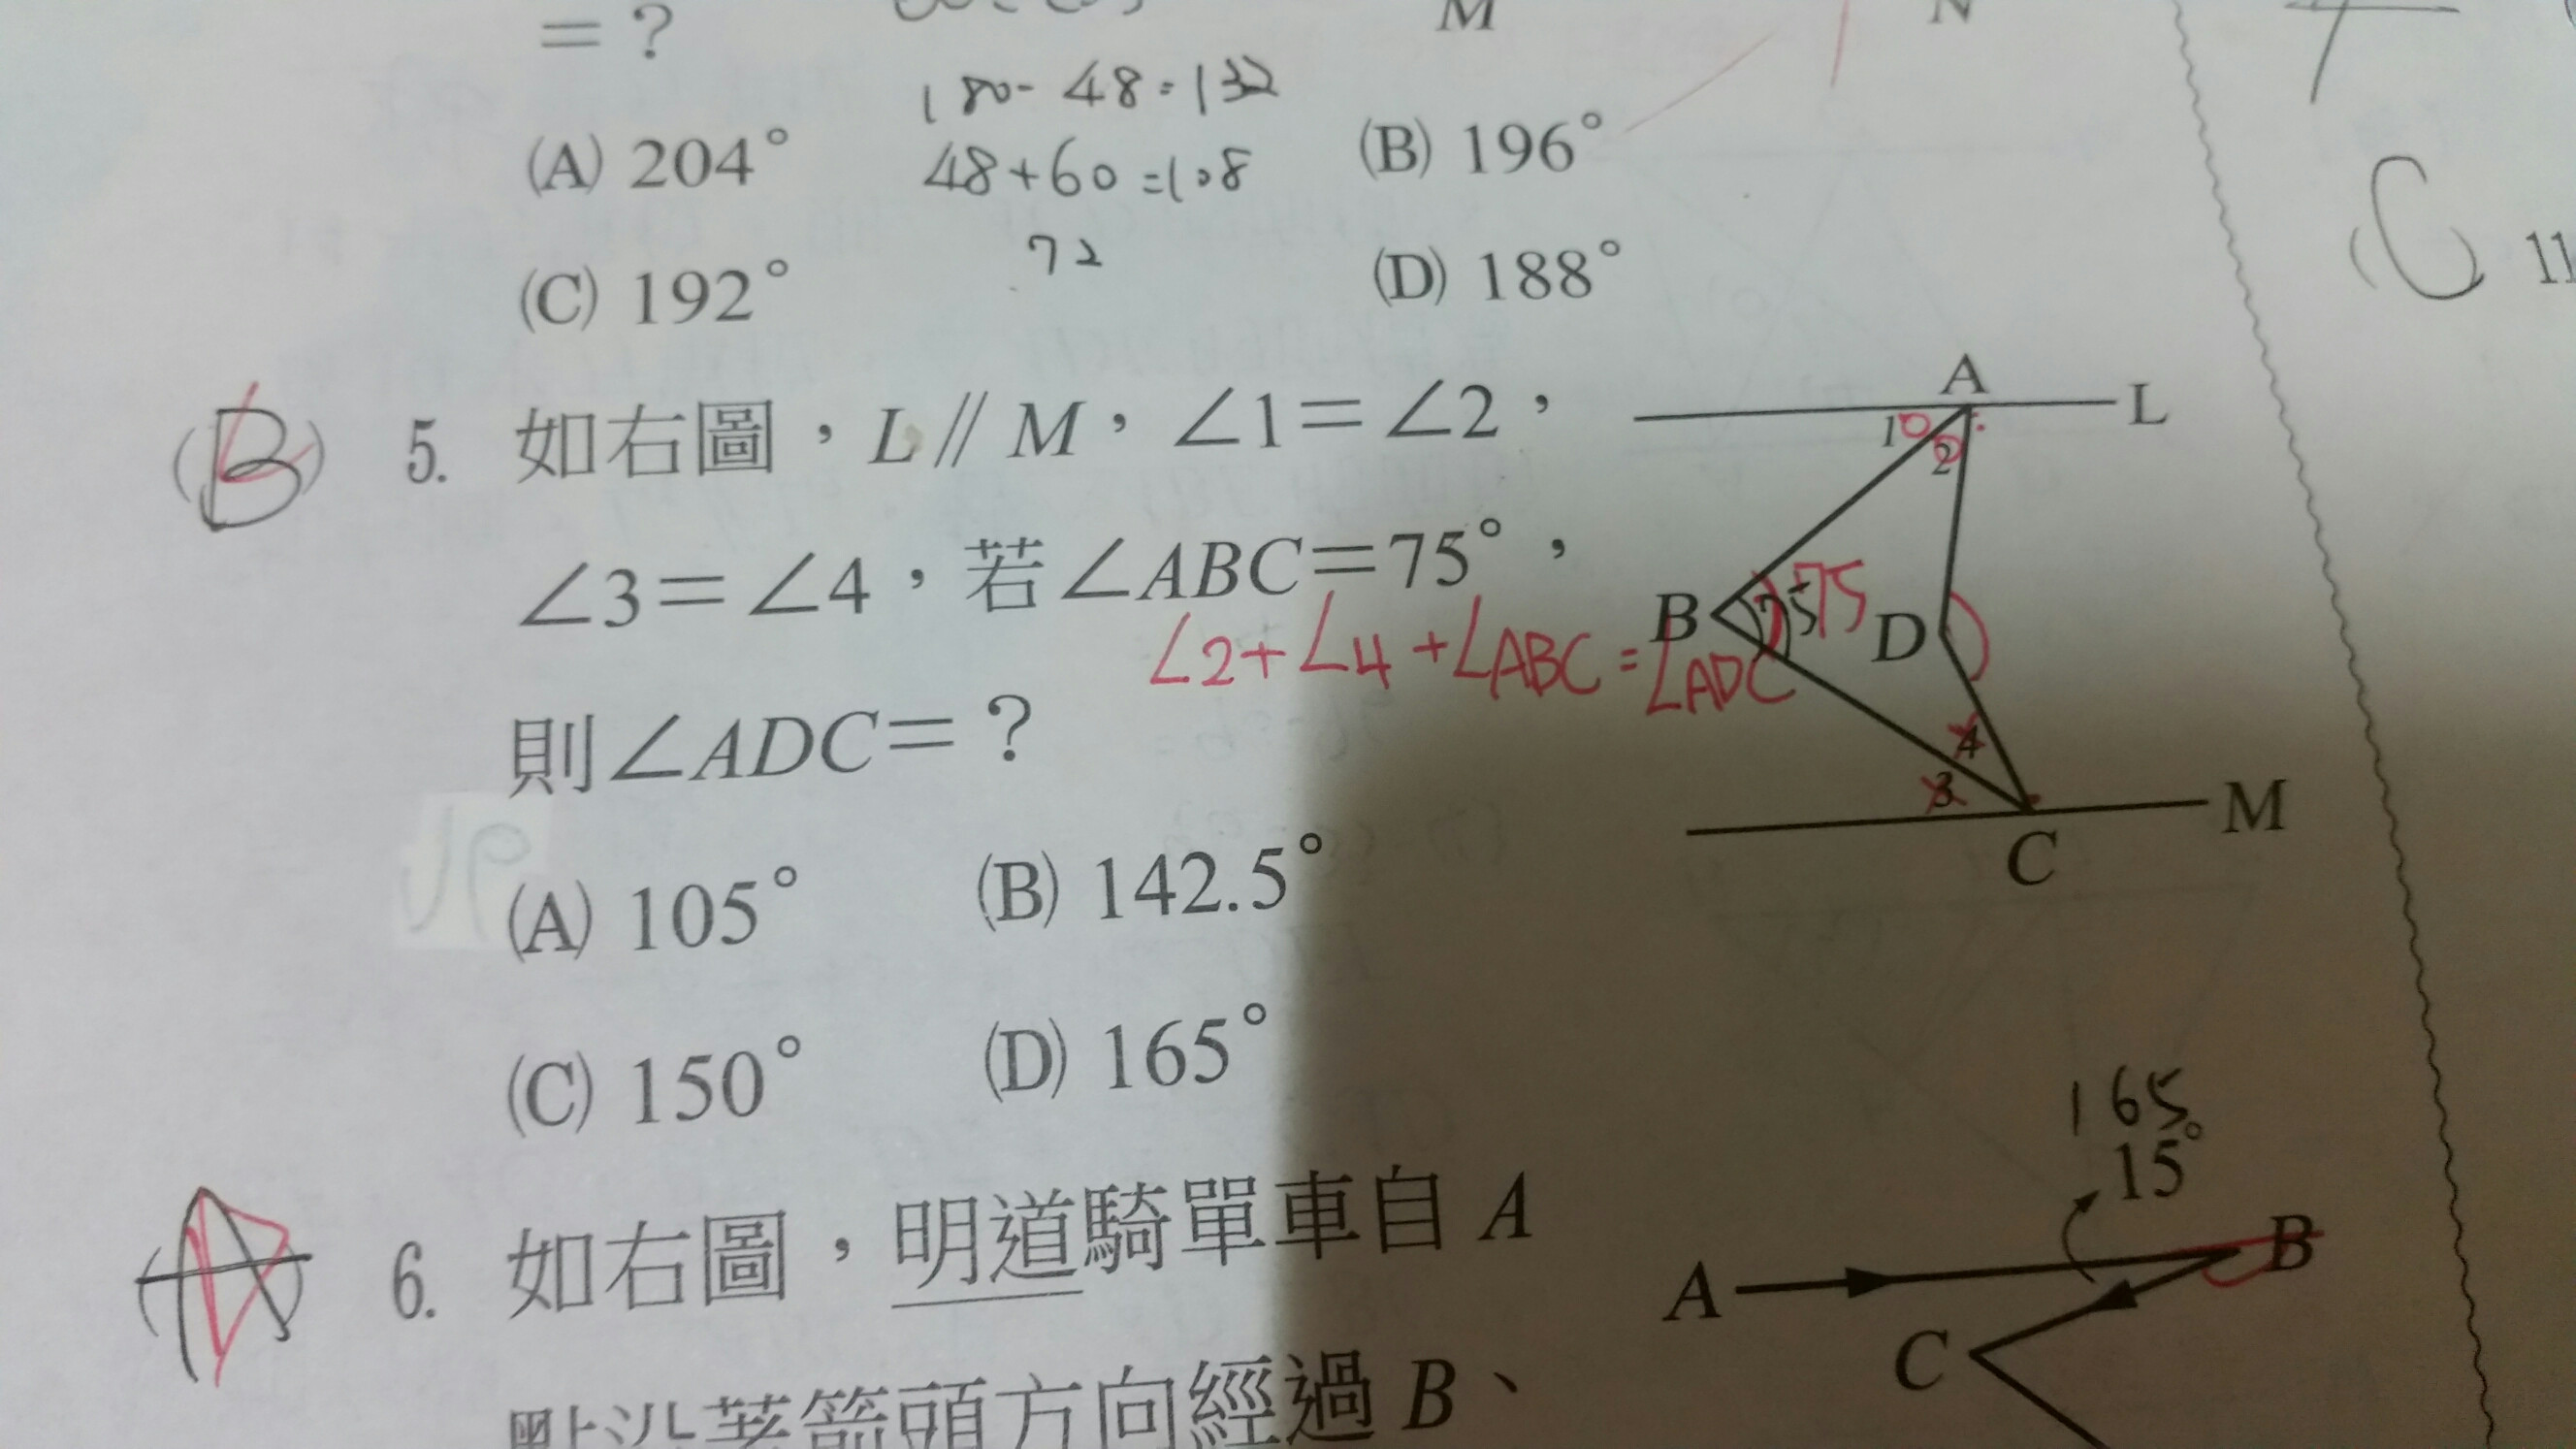 ＝？
M
N
180-48=132
(A) 204°
48+60=108
(B) 196°
72
(C) 192°
(D) 188°
(B) 5. 如右圖，L∥M，∠1＝∠2，
∠3＝∠4，若∠ABC＝75°，
∠2+∠4+∠ABC=∠ADC
則∠ADC＝？
(A) 105°
(B) 142.5°
(C) 150°
(D) 165°
A
L
1
2
B
75
75
D
4
3
M
C
(C) 11
6. 如右圖，明道騎單車自 A
點沿著箭頭方向經過 B、
165
15°
A
B
C